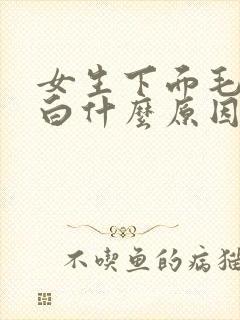 女生下而毛
白什麼原因
不喫鱼的病猫